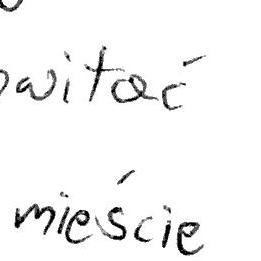 witać
mieście